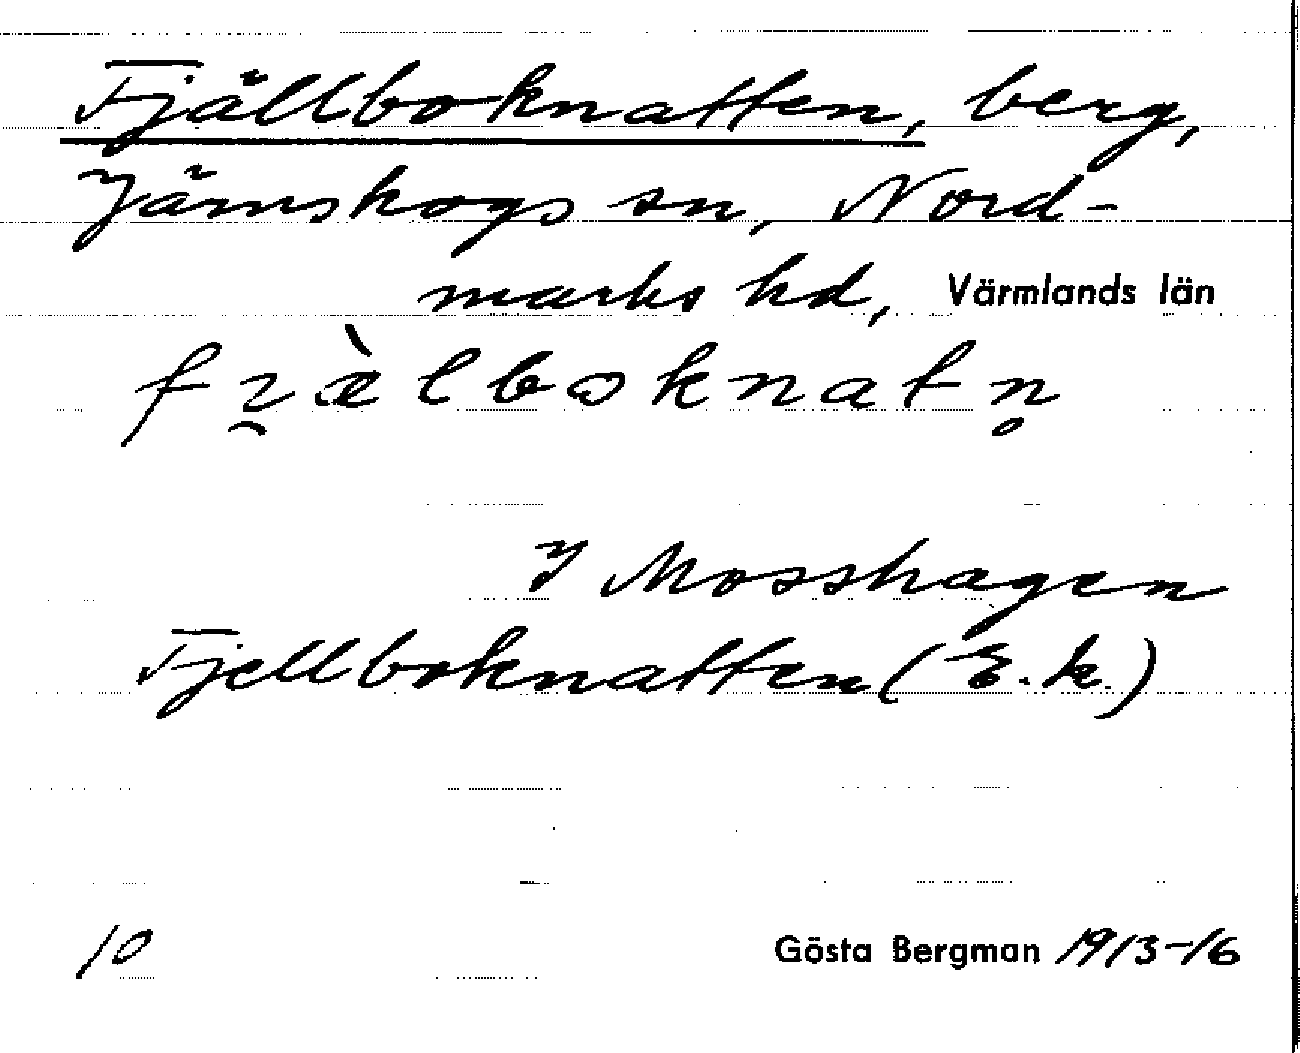 Fjällboknatten, berg,
Järnskogs sn, Nord-
marks hd, Värmlands län
fi̯æ̀lbωknatn̥
I Mosshagen
Fjellboknatten (E.k.)
10 Gösta Bergman 1913-16